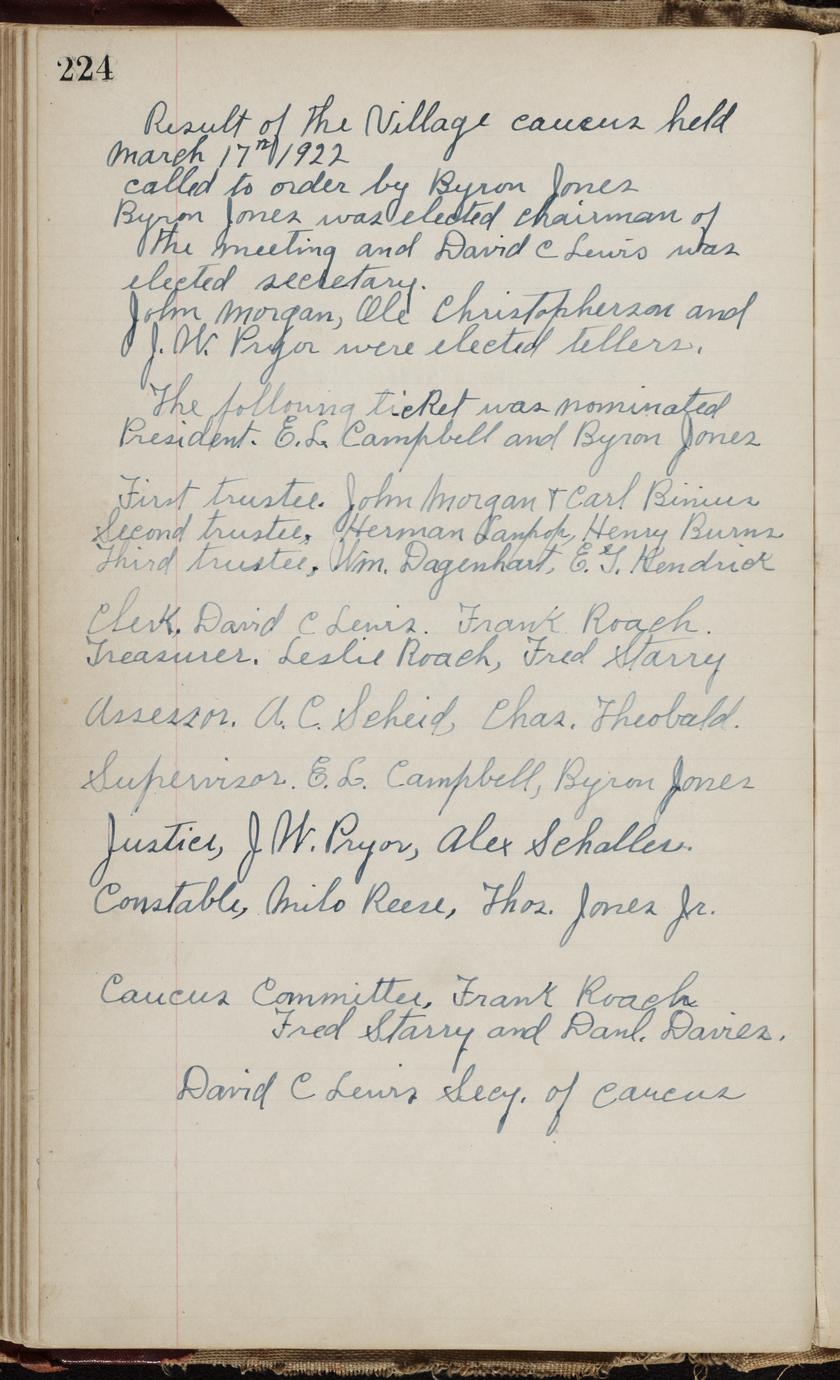 224
Result of the Village caucus held
March 17th 1922
called to order by Byron Jones
Byron Jones was elected chairman of
the meeting and David C Lewis was
elected secretary.
John Morgan, Ole Christopherson and
J. W. Pryor were elected tellers.
The following ticket was nominated
President. E.L. Campbell and Byron Jones
First trustee. John Morgan & Carl Binius
Second trustee, Herman Henry Burns
Third trustee, Wm. Dagenhart, E. G. Kendrick
Clerk. David C Lewis. Frank Roach.
Treasurer. Leslie Roach, Fred Starry
Assessor. A. C. Scheid, Chas. Theobald.
Supervisor. E. L. Campbell, Byron Jones
Justice, J W. Pryor, Alex Schaller.
Constable, Milo Reese, Thos. Jones Jr.
Caucus Committee, Frank Roach
Fred Starry and Danl. Davies.
David C Lewis Secy. of caucus